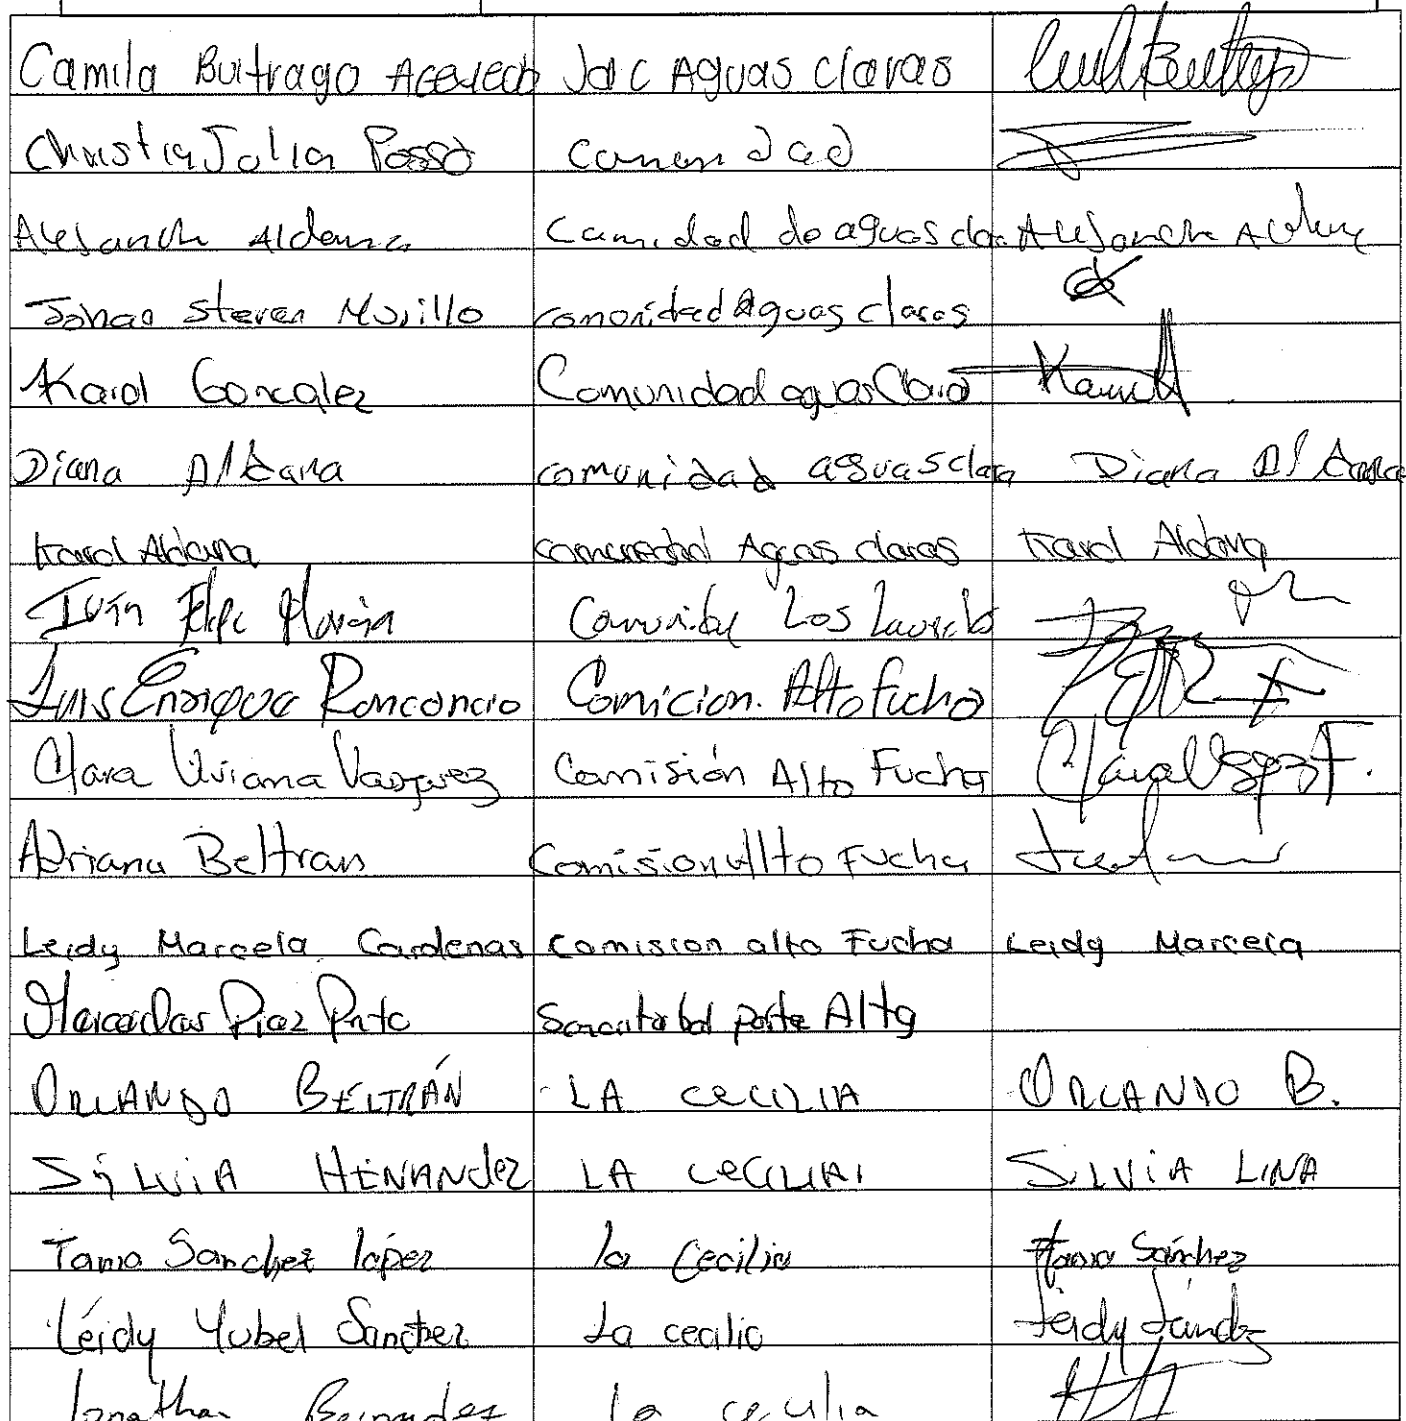 Camila Buitrago Acevedo Jac Aguas Claras
Christian Julian Posso Comunidad
Alejandra Aldana Comidad de aguas clar Alejandra Aldana
Johan Steven Murillo comonidad Aguas claras
Karol Gonzalez Comunidad aguas Clara Karol
Diana Aldana comunidad aguas clara Diana Aldana
Karol Aldana comunidad Aguas claras Karol Aldana
Iván Felipe Marín Comunidad Los Laureles
Luis Enrique Roncancio Comicion. Alto Fucha
Clara Viviana Vazquez Comisión Alto Fucha
Adriana Beltran Comision Alto Fucha
Leidy Marcela Cardenas Comision alto Fucha Leidy Marcela
Mercedes Diaz parte Alta
ORLANDO BELTRÁN LA CECILIA ORLANDO B.
SILVIA HENANdez LA CECILIA SILVIA LINA
Tania Sanchez lópez la Cecilia Tania Sánchez
Leidy Yubel Sanchez La cecilia Leidy Sánchez
Jonathan Bernudez La cecilia